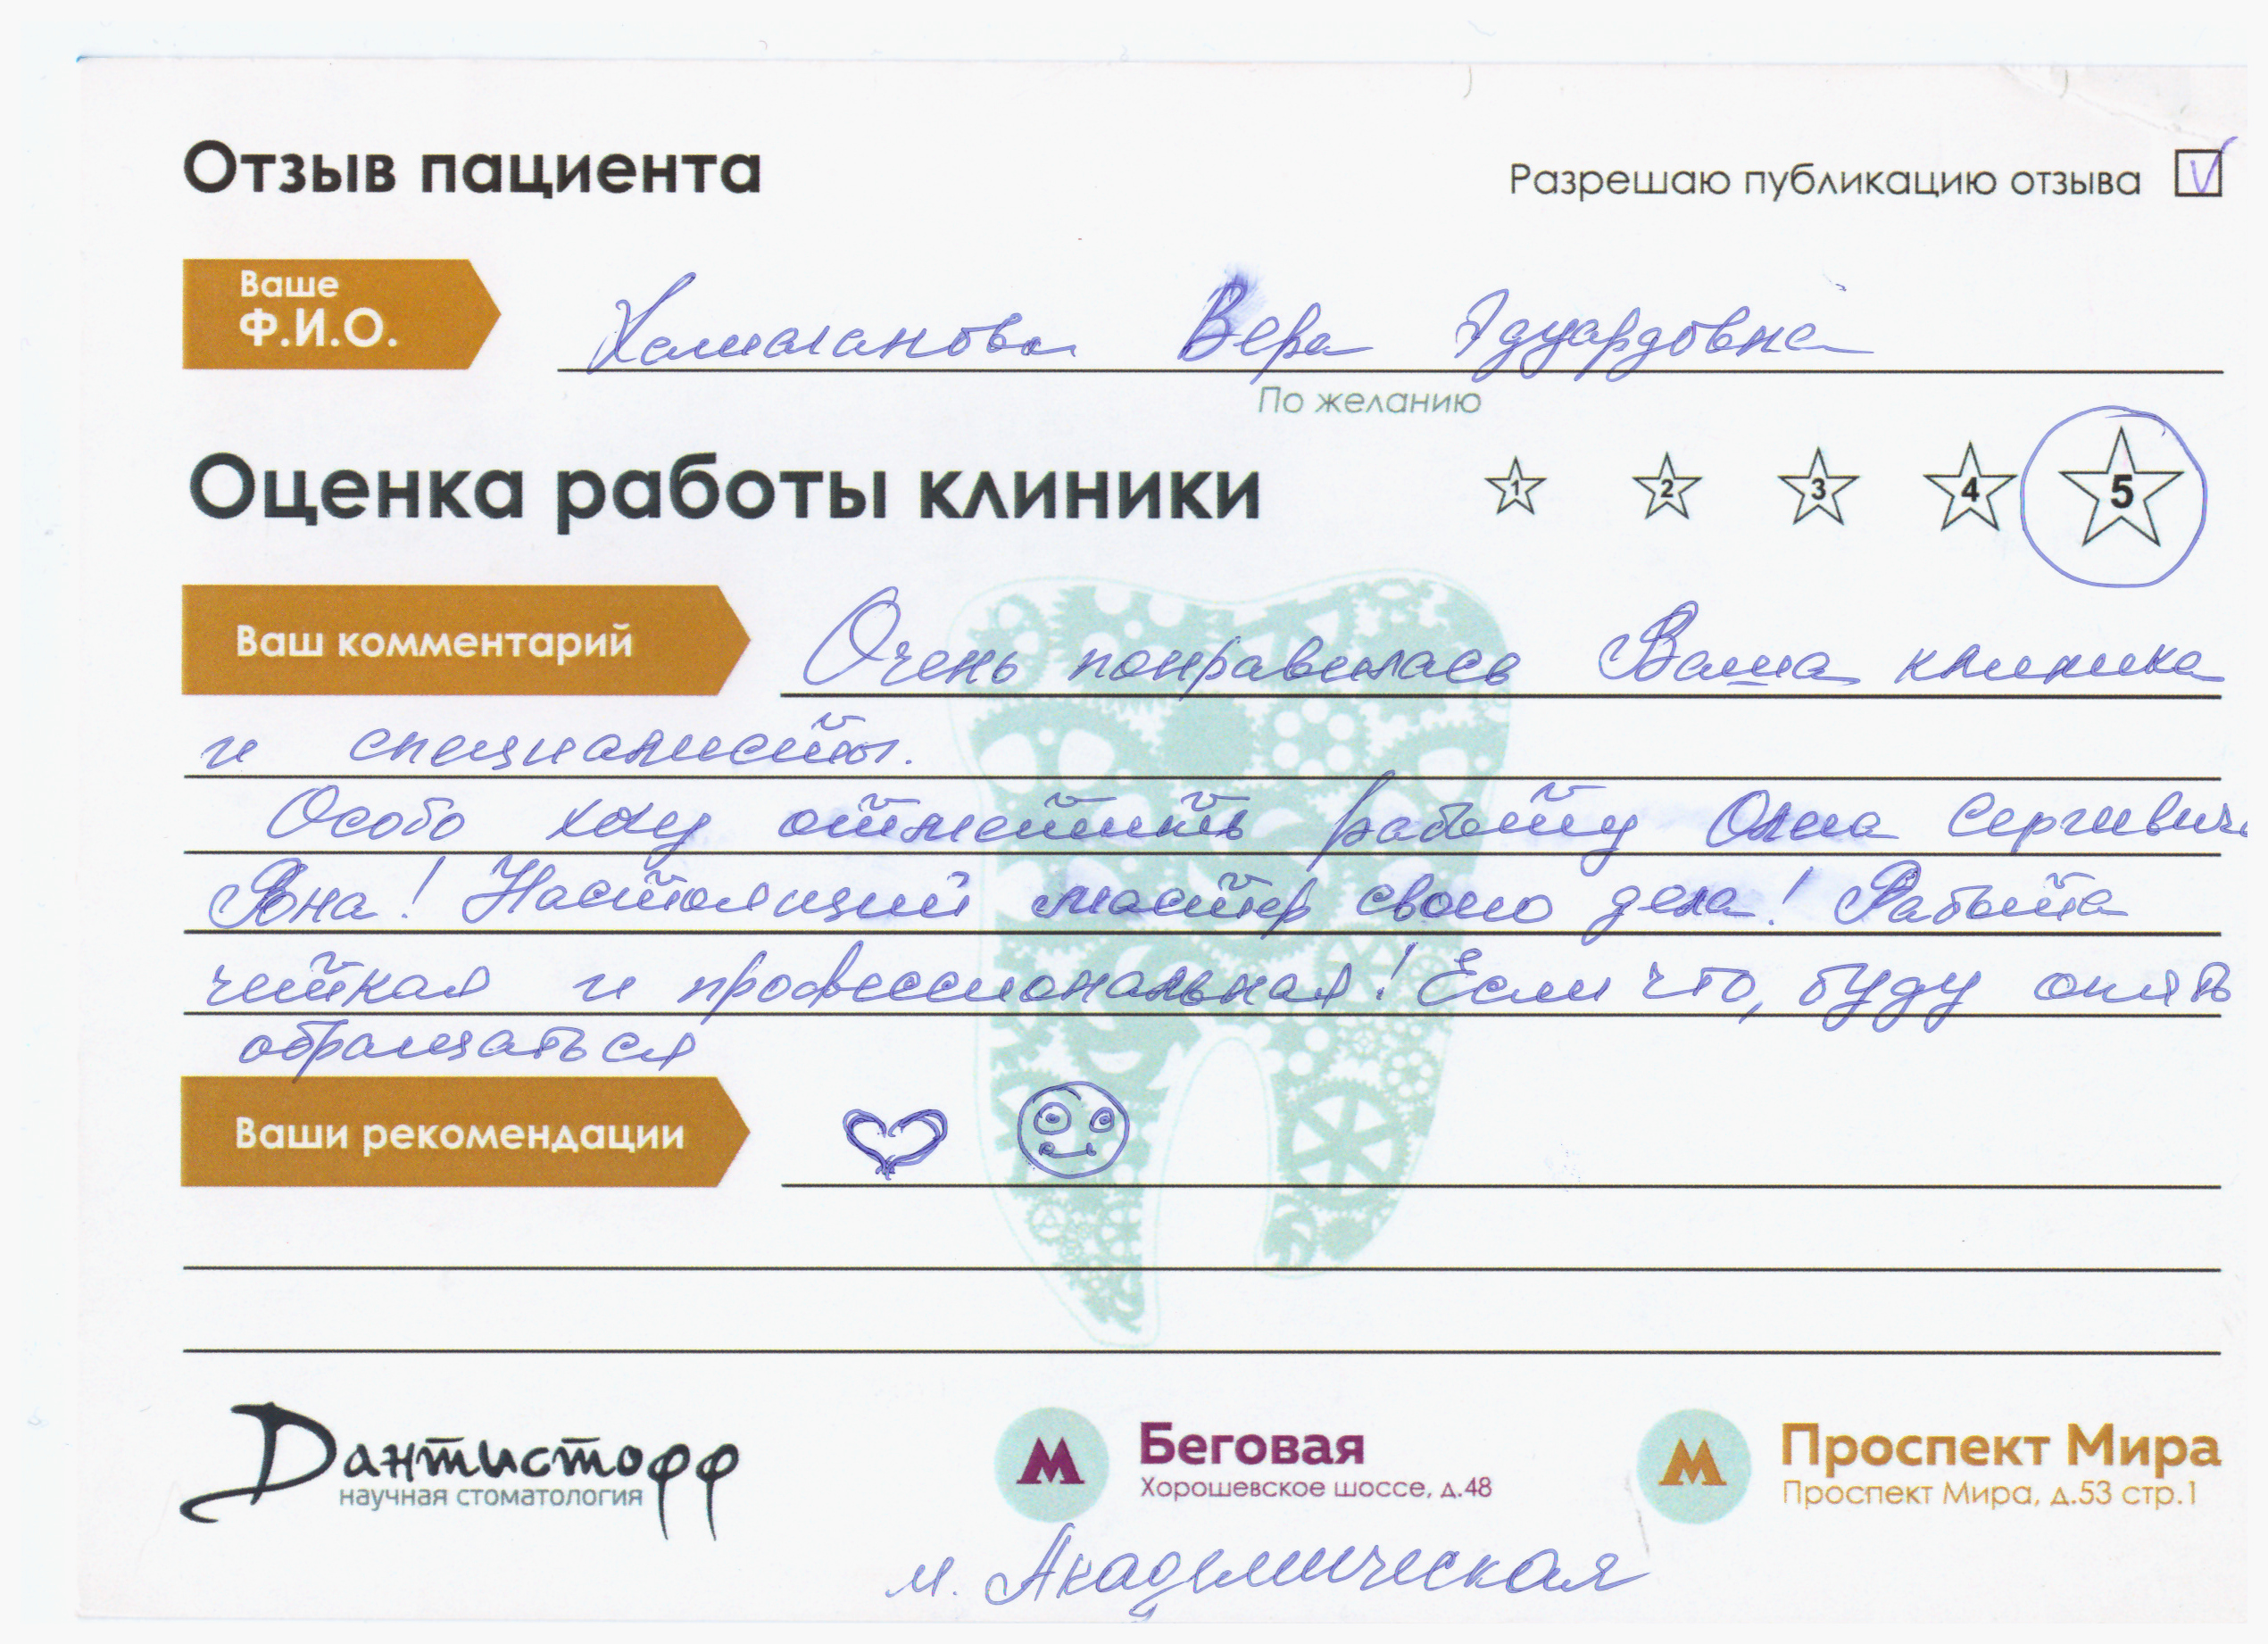 Отзыв пациента
Разрешаю публикацию отзыва
Ваше
Ф.И.О.
Вера Эдуардовна
По желанию
Оценка работы клиники
1 2 3 4 5
Ваш комментарий
Очень понравилась Ваша клиника
и специалисты.
Особо хочу отметить работу Олега Сергивича
Яна! Настоящий мастер свого дела! Работа
чёткая и профессиональная! Если что, буду опять
обращаться
Ваши рекомендации
Дантистофф
научная стоматология
Беговая
Хорошевское шоссе, д.48
Проспект Мира
Проспект Мира, д.53 стр.1
м. Академическая